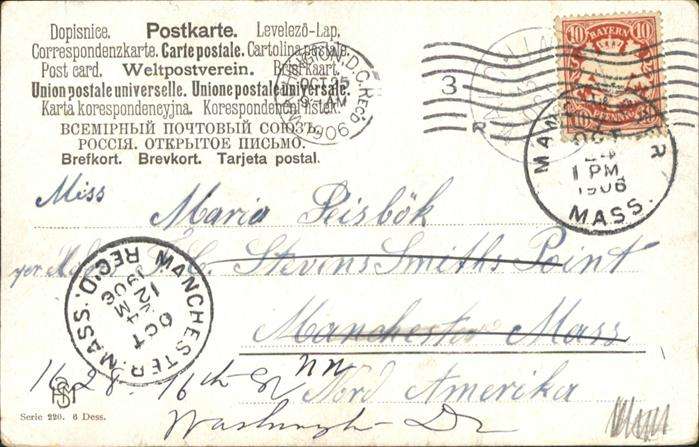 Dopisnice. Postkarte. Levelező-Lap.
Correspondenzkarte. Carte postale. Cartolina postale.
Post card. Weltpostverein. Brefkaart.
Union postale universelle. Unione postale universale.
Karta korespondencyjna. Korespondenční lístek.
ВСЕМІРНЫЙ ПОЧТОВЫЙ СОЮЗЪ.
РОССІЯ. ОТКРЫТОЕ ПИСЬМО.
Brefkort. Brevkort. Tarjeta postal.
WASHINGTON, D.C. REC'D.
OCT 25
9-AM
1906
3
R
10 BAYERN 10
PFENNIG
MANCHESTER
OCT
24
1 PM
1906
MASS.
Miss
Maria Peisbök
Stevens Smiths Point
Manchester Mass
Nord Amerika
MANCHESTER, MASS.
OCT
12
4 M
1906
REC'D.
1628 16th St NW
Washington DC
Serie 220. 6 Dess.